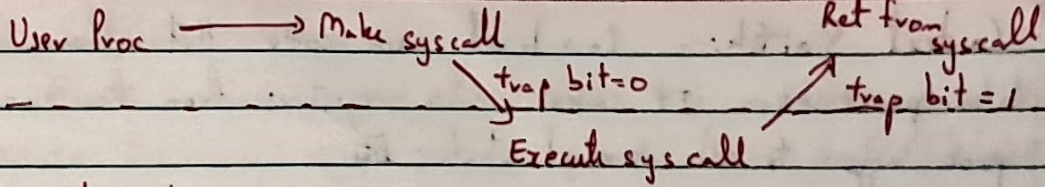 User Proc → Make syscall
Ret from syscall
trap bit=0
trap bit=1
Execute sys call